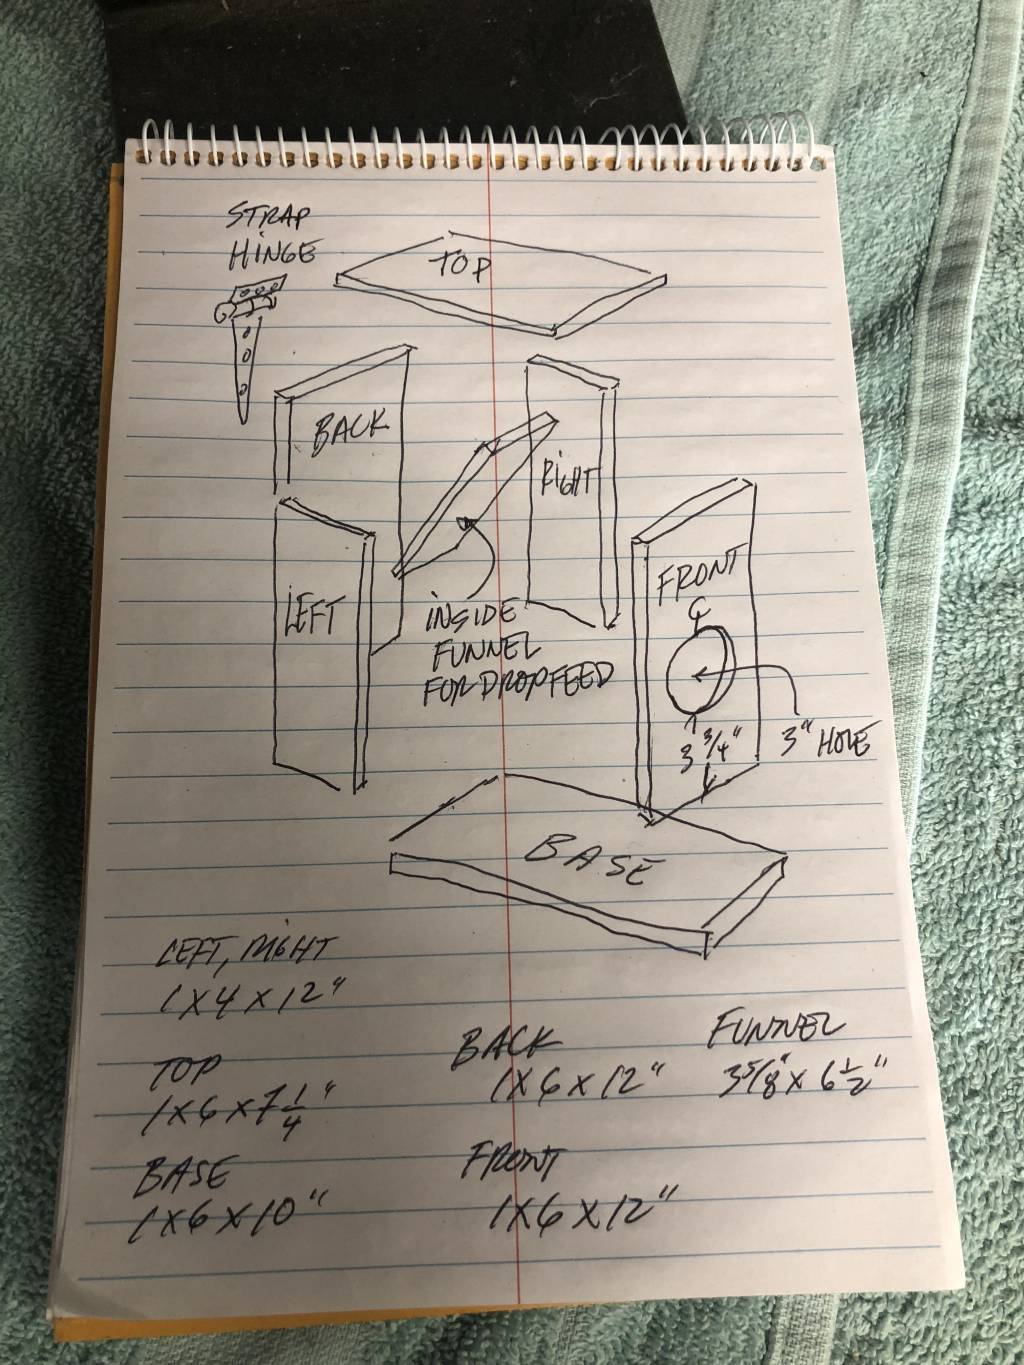 STRAP
HINGE
TOP
BACK
RIGHT
LEFT
INSIDE
FUNNEL
FOR DROP FEED
FRONT
℄
3 3/4"
3" HOLE
BASE
LEFT, RIGHT
1 X 4 X 12"
TOP
1 X 6 X 7 1/4"
BASE
1 X 6 X 10"
BACK
1 X 6 X 12"
FRONT
1 X 6 X 12"
FUNNEL
3 5/8" X 6 1/2"